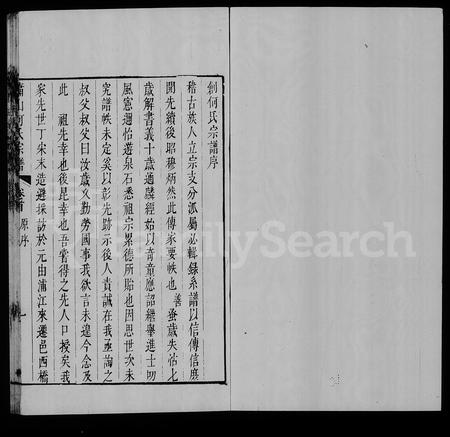 創何氏宗譜序
稽古族人立宗支分派屬必輯錄系譜以信傳信庶
開先續後昭穆炳然此傳家要帙也善蚤歲失怙七
歲解書義十歲通麟經始以奇童應詔繼舉進士叨
風憲邇怡遊泉石悉祖宗累德所貽也因思世次未
究譜帙未定奚以彰先跡示後人責誠在我亟詢之
叔父叔父曰汝歲久勤勞國事我欲言未遑今念及
此祖先幸也後昆幸也吾嘗得之先人口授矣我
家先世丁宋末造避採訪於元由浦江來遷邑西橋
蕭山何氏宗譜 卷首 原序 一
FamilySearch